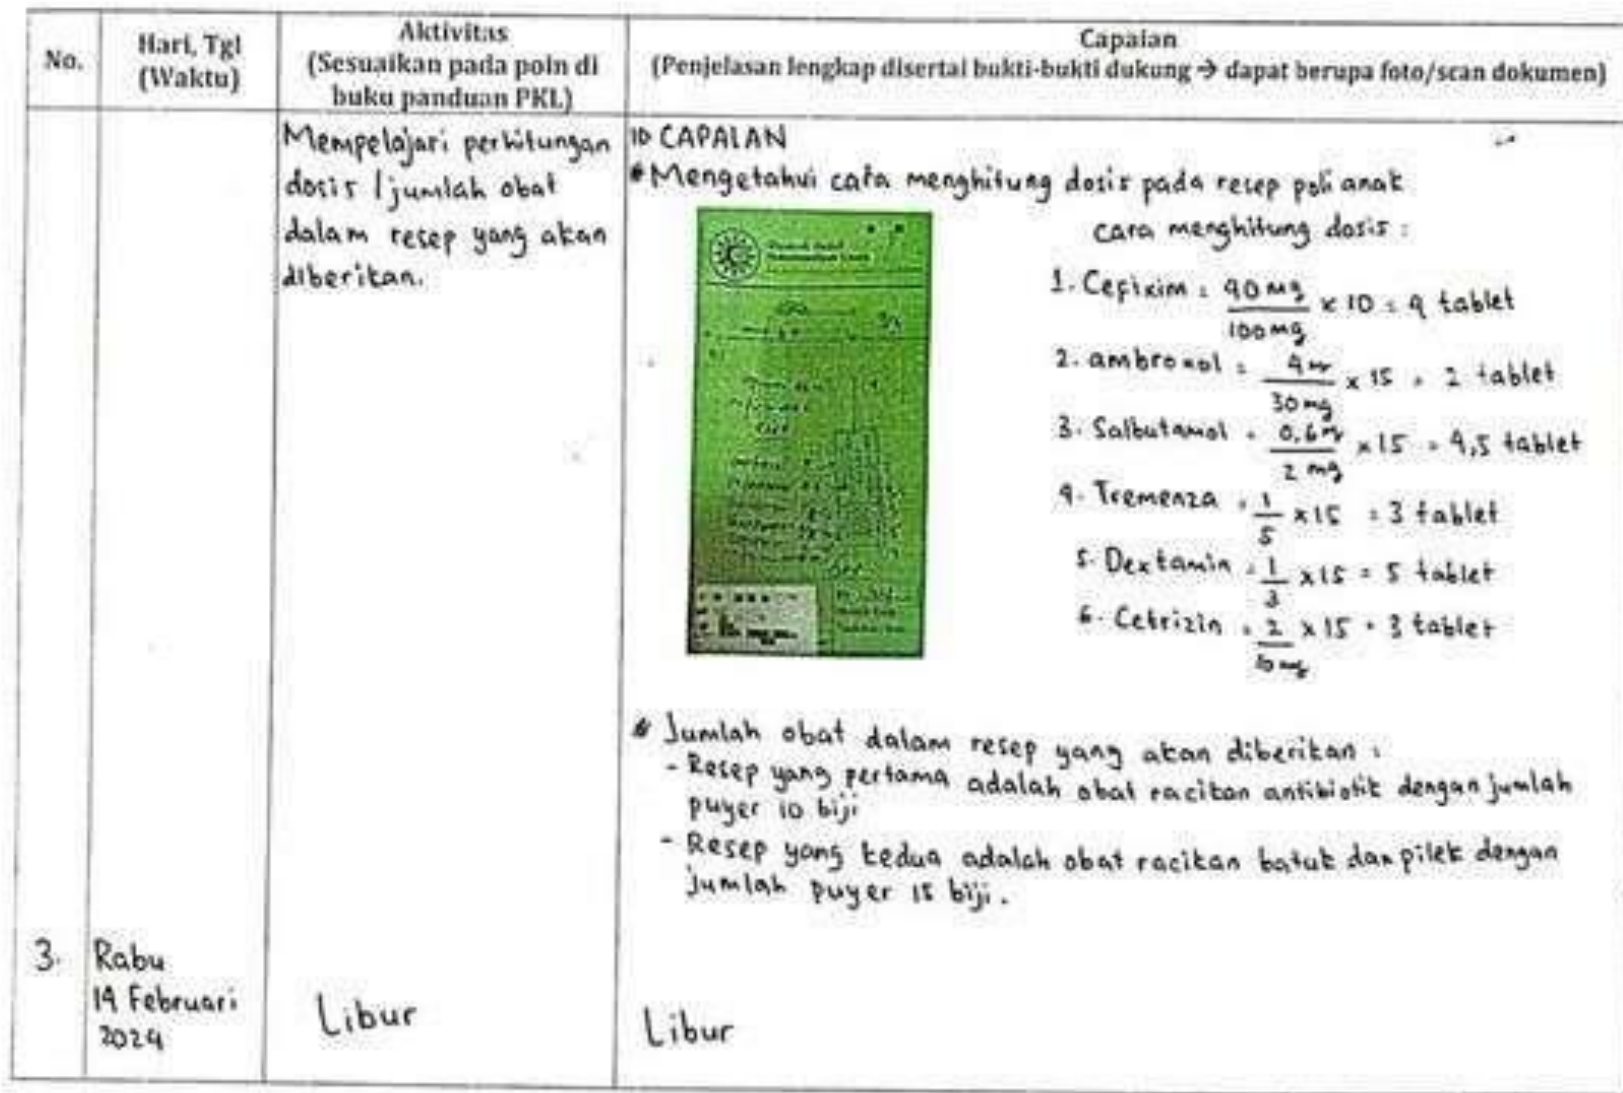 No.
Hari, Tgl
(Waktu)
Aktivitas
(Sesuaikan pada poin di
buku panduan PKL)
Capaian
(Penjelasan lengkap disertai bukti-bukti dukung → dapat berupa foto/scan dokumen)
Mempelajari perhitungan
dosis / jumlah obat
dalam resep yang akan
diberikan.
10 CAPAIAN
# Mengetahui cara menghitung dosis pada resep poli anak
cara menghitung dosis :
1. Cefixim = 90 mg / 100 mg x 10 = 9 tablet
2. ambroxol = 4 mg / 30 mg x 15 = 2 tablet
3. Salbutamol = 0,6 mg / 2 mg x 15 = 4,5 tablet
4. Tremenza = 1 / 5 x 15 = 3 tablet
5. Dextamin = 1 / 3 x 15 = 5 tablet
6. Cetrizin = 2 / 10 mg x 15 = 3 tablet
# Jumlah obat dalam resep yang akan diberikan :
- Resep yang pertama adalah obat racikan antibiotik dengan jumlah
puyer 10 biji
- Resep yang kedua adalah obat racikan batuk dan pilek dengan
jumlah puyer 15 biji.
3. Rabu
14 Februari
2024
Libur
Libur